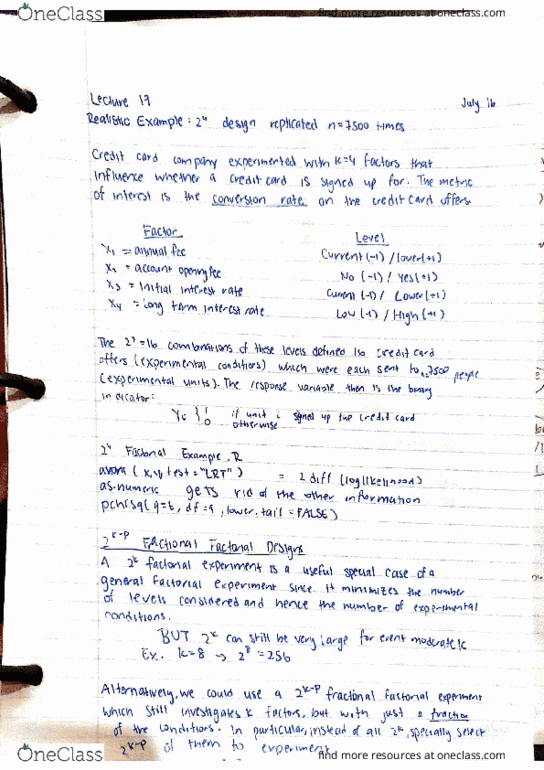 OneClass
find more resources at oneclass.com
Lecture 17
July 16
Realistic Example: 2⁴ design replicated n=7500 times
Credit card company experimented with k=4 factors that
influence whether a credit card is signed up for. The metric
of interest is the conversion rate on the credit card offers
Factor
Level
x₁ = annual fee
Current (-1) / lower (+1)
x₂ = account opening fee
No (-1) / Yes (+1)
x₃ = initial interest rate
Current (-1) / Lower (+1)
x₄ = Long term interest rate
Low (-1) / High (+1)
The 2⁴=16 combinations of these levels defined 16 credit card
offers (experimental conditions) which were each sent to n=7500 people
(experimental units). The response variable then is the binary
indicator:
if unit i signed up the credit card
otherwise
2⁴ Factorial Example.R
test = "LRT") = 2 diff (log likelihood)
as.numeric gets rid of the other information
pchisq( df= , lower.tail = FALSE)
2^k-p Factional Factorial Designs
A 2^k factorial experiment is a useful special case of a
general factorial experiment since it minimizes the number
of levels considered and hence the number of experimental
conditions.
BUT 2^k can still be very large for even moderate k
Ex. k=8 → 2⁸ = 256
Alternatively, we could use a 2^k-p fractional factorial experiment
which still investigates k factors, but with just a fraction
of the conditions. In particular, instead of all 2^k, specially select
2^k-p of them to experiment
OneClass
find more resources at oneclass.com